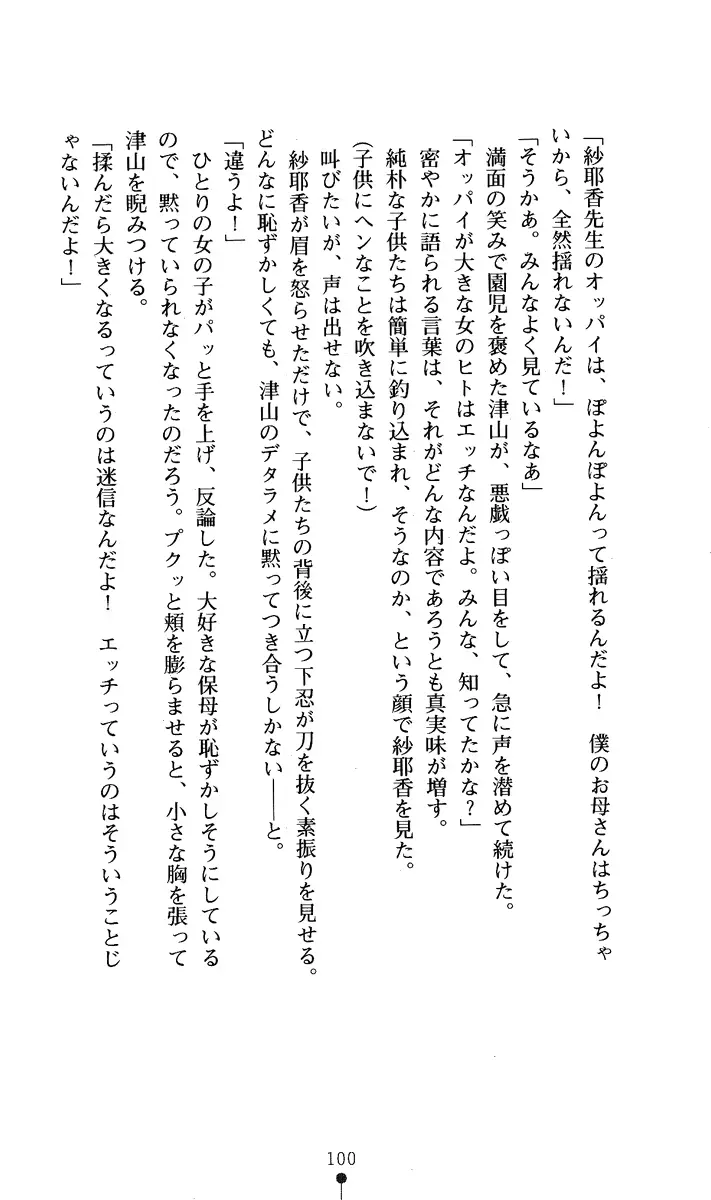 「紗耶香先生のオッパイは、ぽよんぽよんって揺れるんだよ！　僕のお母さんはちっちゃ
いから、全然揺れないんだ！」
「そうかあ。みんなよく見ているなあ」
　満面の笑みで園児を褒めた津山が、悪戯っぽい目をして、急に声を潜めて続けた。
「オッパイが大きな女のヒトはエッチなんだよ。みんな、知ってたかな？」
　密やかに語られる言葉は、それがどんな内容であろうとも真実味が増す。
　純朴な子供たちは簡単に釣り込まれ、そうなのか、という顔で紗耶香を見た。
(子供にヘンなことを吹き込まないで！)
　叫びたいが、声は出せない。
　紗耶香が眉を怒らせただけで、子供たちの背後に立つ下忍が刀を抜く素振りを見せる。
どんなに恥ずかしくても、津山のデタラメに黙ってつき合うしかない――と。
「違うよ！」
　ひとりの女の子がパッと手を上げ、反論した。大好きな保母が恥ずかしそうにしている
ので、黙っていられなくなったのだろう。プクッと頬を膨らませると、小さな胸を張って
津山を睨みつける。
「揉んだら大きくなるっていうのは迷信なんだよ！　エッチっていうのはそういうことじ
ゃないんだよ！」
100